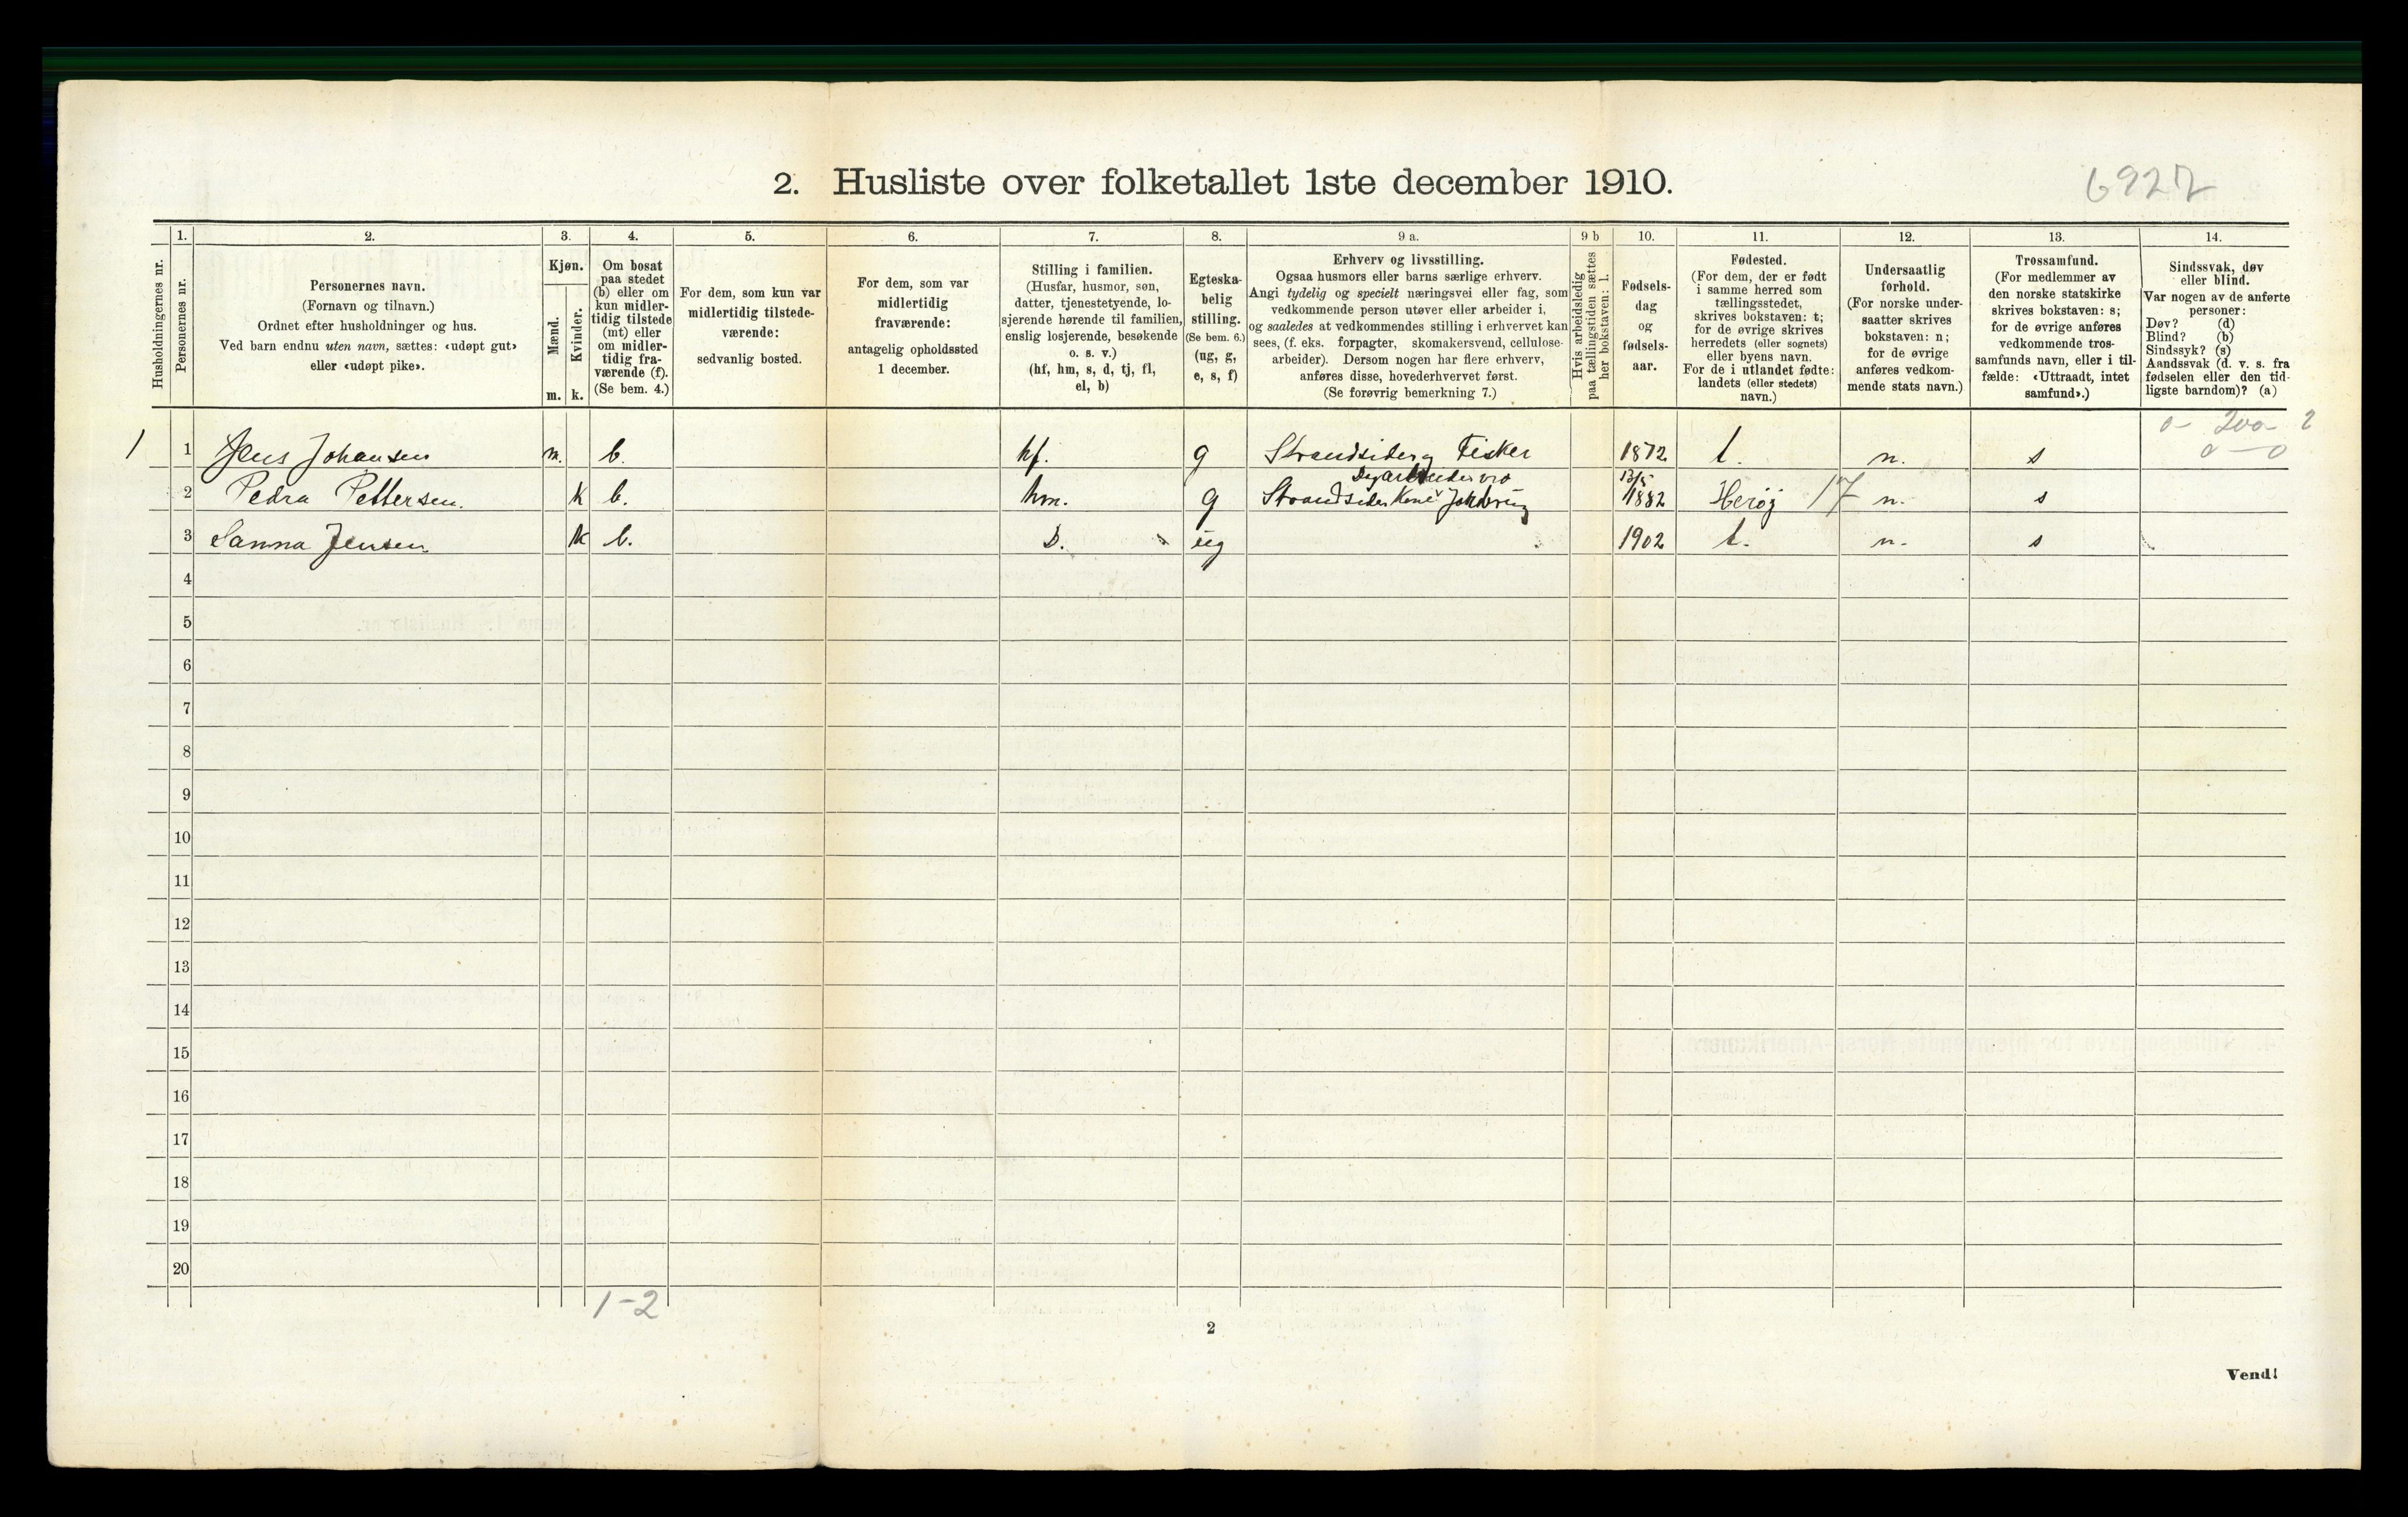 2. Husliste over folketallet 1ste december 1910.
6927
Husholdningernes nr.
1.
Personernes nr.
2.
Personernes navn.
(Fornavn og tilnavn.)
Ordnet efter husholdninger og hus.
Ved barn endnu uten navn, sættes: «udøpt gut»
eller «udøpt pike».
3.
Kjøn.
Mænd.
Kvinder.
m. k.
4.
Om bosat
paa stedet
(b) eller om
kun midler-
tidig tilstede
(mt) eller
om midler-
tidig fra-
værende (f).
(Se bem. 4.)
5.
For dem, som kun var
midlertidig tilstede-
værende:
sedvanlig bosted.
6.
For dem, som var
midlertidig
fraværende:
antagelig opholdssted
1 december.
7.
Stilling i familien.
(Husfar, husmor, søn,
datter, tjenestetyende, lo-
sjerende hørende til familien,
enslig losjerende, besøkende
o. s. v.)
(hf, hm, s, d, tj, fl,
el, b)
8.
Egteska-
belig
stilling.
(Se bem. 6.)
(ug, g,
e, s, f)
9 a.
Erhverv og livsstilling.
Ogsaa husmors eller barns særlige erhverv.
Angi tydelig og specielt næringsvei eller fag, som
vedkommende person utøver eller arbeider i,
og saaledes at vedkommendes stilling i erhvervet kan
sees, (f. eks. forpagter, skomakersvend, cellulose-
arbeider). Dersom nogen har flere erhverv,
anføres disse, hovederhvervet først.
(Se forøvrig bemerkning 7.)
9 b
Hvis arbeidsledig
paa tællingstiden sættes
her bokstaven: l.
10.
Fødsels-
dag
og
fødsels-
aar.
11.
Fødested.
(For dem, der er født
i samme herred som
tællingsstedet,
skrives bokstaven: t;
for de øvrige skrives
herredets (eller sognets)
eller byens navn.
For de i utlandet fødte:
landets (eller stedets)
navn.)
12.
Undersaatlig
forhold.
(For norske under-
saatter skrives
bokstaven: n;
for de øvrige
anføres vedkom-
mende stats navn.)
13.
Trossamfund.
(For medlemmer av
den norske statskirke
skrives bokstaven: s;
for de øvrige anføres
vedkommende tros-
samfunds navn, eller i til-
fælde: «Uttraadt, intet
samfund».)
14.
Sindssvak, døv
eller blind.
Var nogen av de anførte
personer:
Døv? (d)
Blind? (b)
Sindssyk? (s)
Aandssvak (d. v. s. fra
fødselen eller den tid-
ligste barndom)? (a)
0 - 200 - 2
0 - 0
1 1 Jens Johansen m. b. hf. g Strandsider og Fisker 1872 t. n. s
2 Pedra Pettersen. k b. hm. g Strandsider Kone 13/5 1882 Herøj 17 n. s
3 Sanna Jensen k b. D. ug 1902 t. n. s
4
5
6
7
8
9
10
11
12
13
14
15
16
17
18
19
20
1-2
2
Vend!